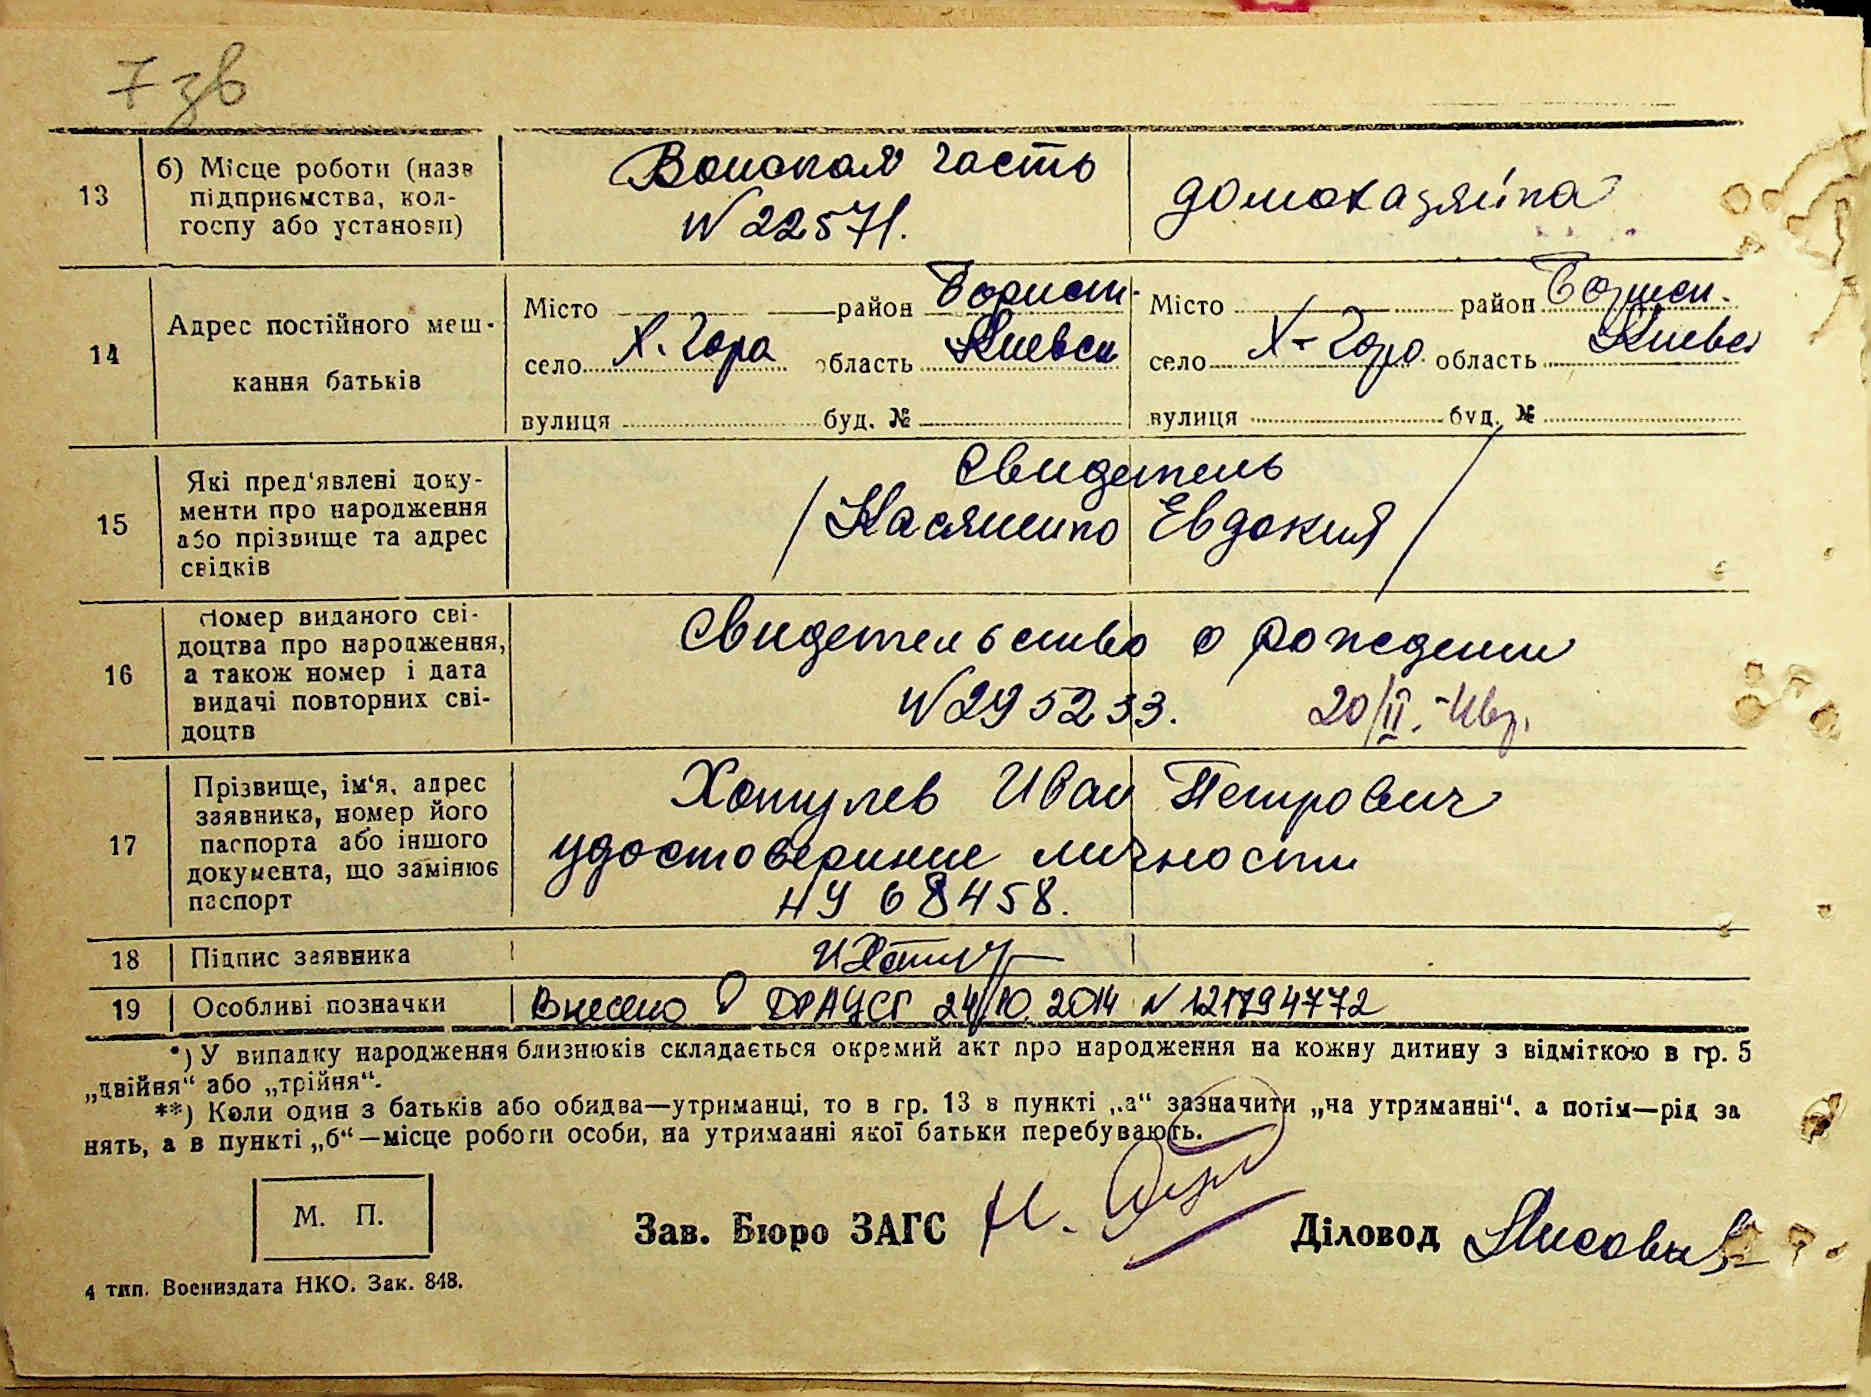 7 зв
13
б) Місце роботи (назв
підприємства, кол-
госпу або установи)
Воиская часть
N 22571.
домохазяйка
14
Адрес постійного меш-
кання батьків
Місто район Борисп.
село Х. Гора область Киевск
вулиця буд. №
Місто район Борисп.
село Х-Гора область Киевс
вулиця буд. №
15
Які пред'явлені доку-
менти про народження
або прізвище та адрес
свідків
Свидетель
Евдокия
16
Номер виданого сві-
доцтва про народження,
а також номер і дата
видачі повторних сві-
доцтв
Свидетельство о рождении
N 295233. 20/II
17
Прізвище, ім'я, адрес
заявника, номер його
паспорта або іншого
документа, що замінює
паспорт
Хатулев Иван Петрович
удостоверение личности
НУ 68458.
18
Підпис заявника
19
Особливі позначки
Внесено О ДРАЦСГ 24/10.2014 N 121794772
*) У випадку народження близнюків складається окремий акт про народження на кожну дитину з відміткою в гр. 5
„двійня“ або „трійня“.
**) Коли один з батьків або обидва—утриманці, то в гр. 13 в пункті „а“ зазначити „на утриманні“, а потім—рід за
нять, а в пункті „б“—місце роботи особи, на утриманні якої батьки перебувають.
М. П.
Зав. Бюро ЗАГС
Діловод
4 тип. Воениздата НКО. Зак. 848.